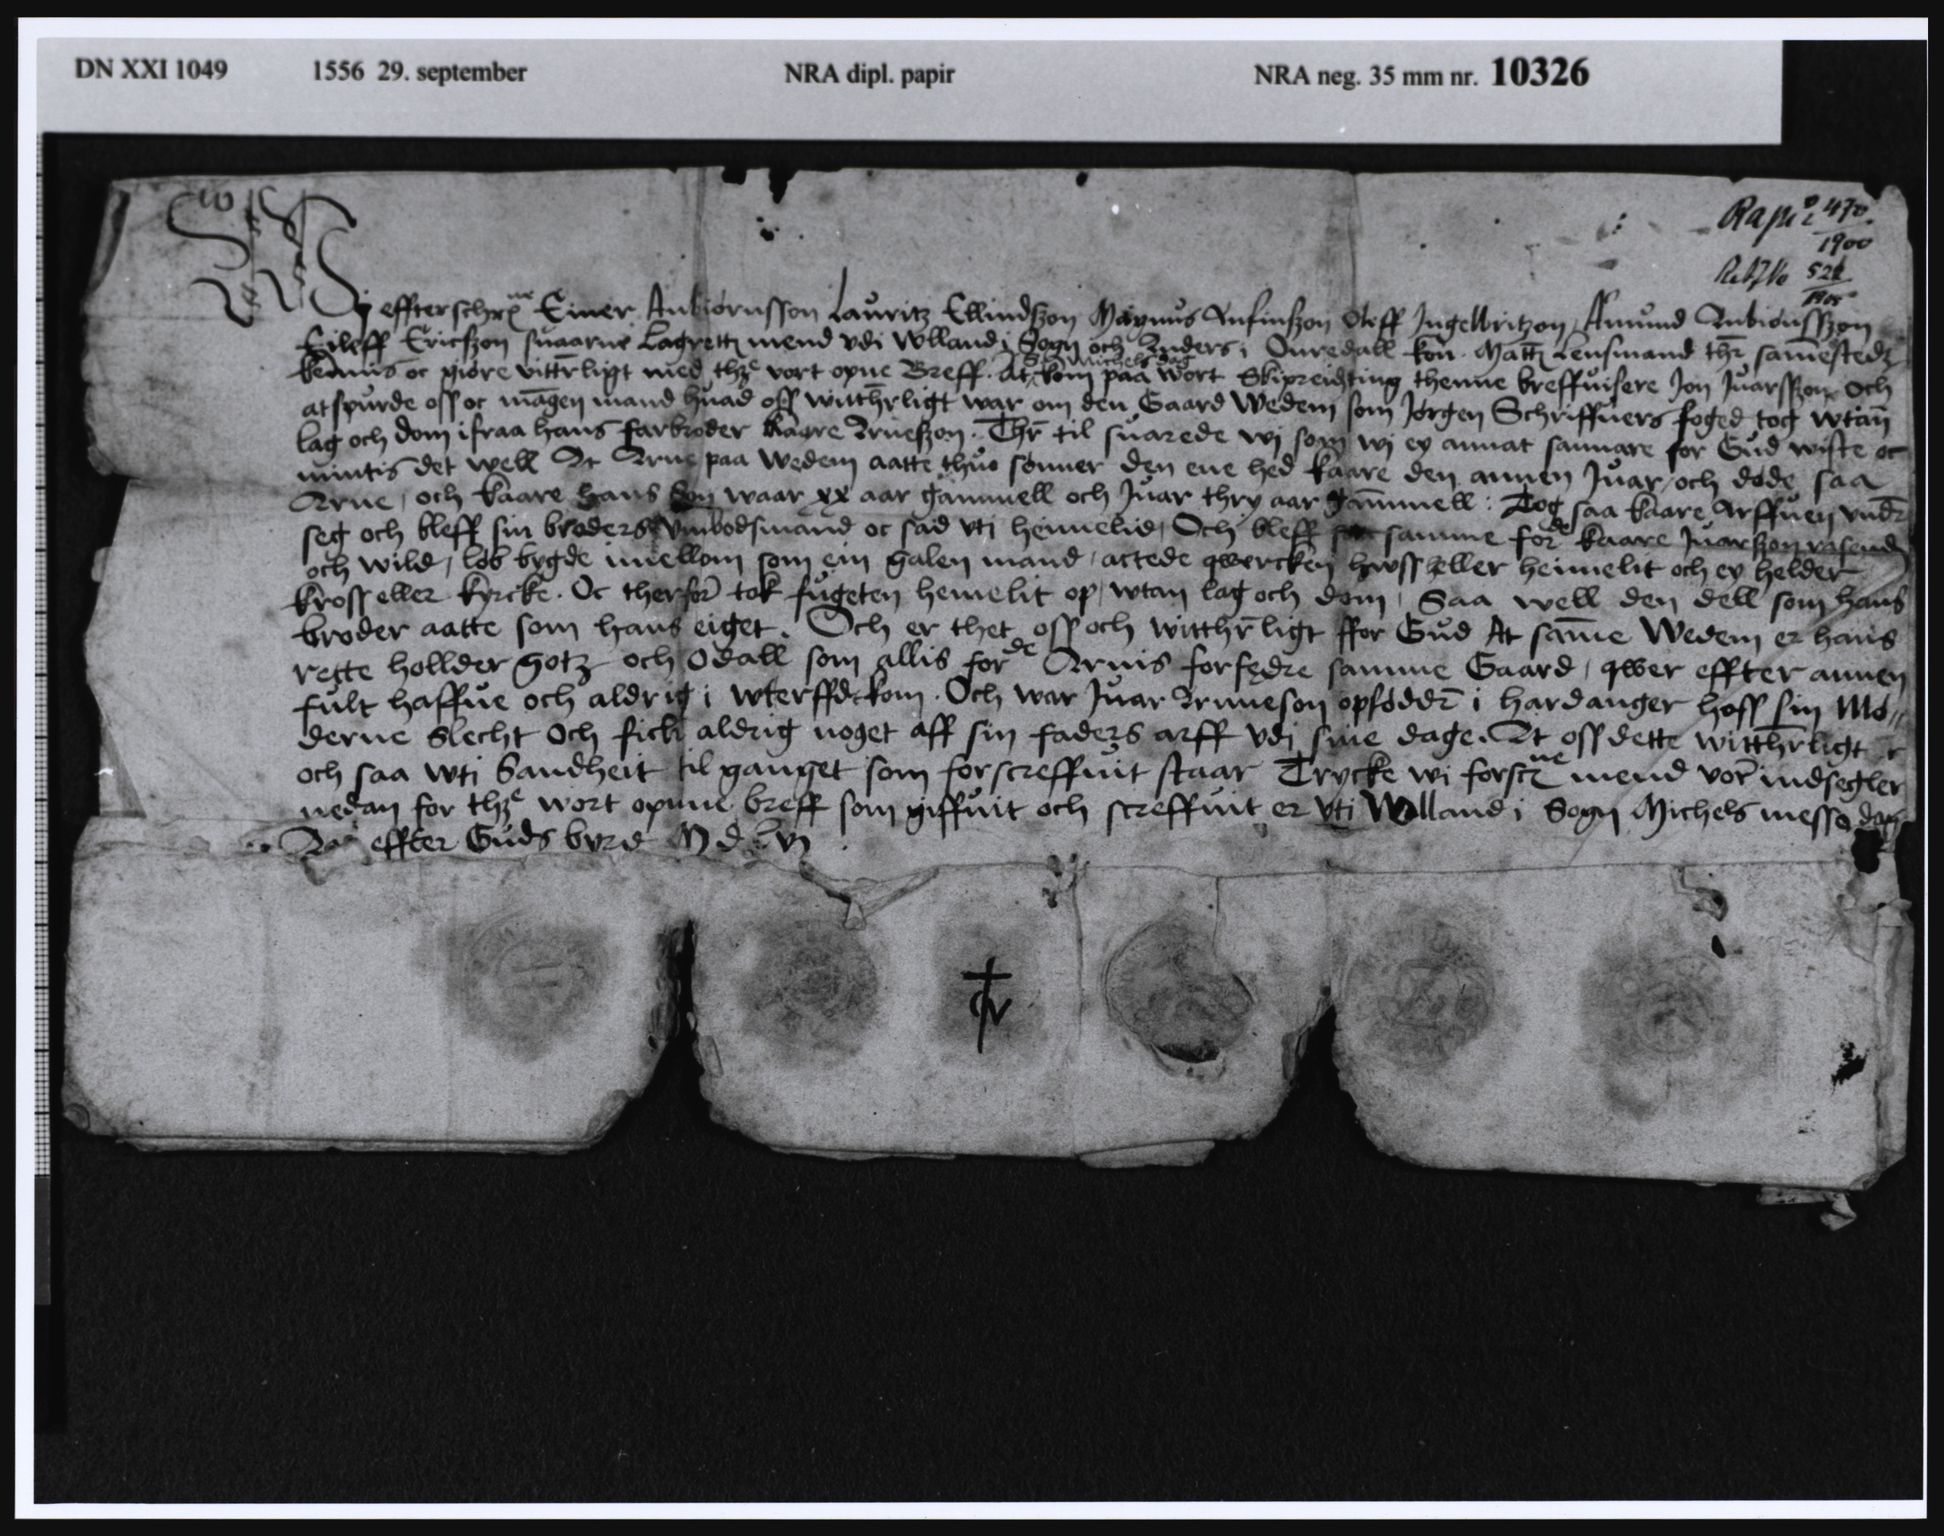 DN XXI 1049 1556 29. september NRA dipl. papir NRA neg. 35 mm nr. 10326
470
1900
521
1905
Wij effterschrne Einer Anbiornsson Lauritz Ellindszon Magnus Anfinszon Oleff Ingelbritzon Amund Anbiønsszon
Eileff Ericszon suaarne Lagrettz mend vdi Wlland i Sogn och Anders i Ouredall kon. Mattz Lensmand thr samestedz
kennis oc giøre vitterligt med thze vort opne Breff. At kom paa Michels dag wort Skipreidting thenne breffuisere Jon Juarszon Och
atspurde oss oc mågen mand huad oss witthrligt war om den Gaard Wedem som Jørgen Schriffuers foged tog wtan
lag och dom ifraa hans farbroder kaare Arneszon. Thr til suarede wi som wj ey annat sannare for Gud wiste oc
mintis det well At Arne paa Wedem aatte thuo sønner den ene hed kaare den annen Juar, och døde saa
Arne, och kaare hans Søn waar xx aar gammell och Juar thry aar gammell: Tog saa kaare Arffuen vndr
seg och bleff sin broders vmbodsmand oc sad vti heimelid, Och bleff samme forde kaare Juarszon rasendj
och wild, løb bygde imellom som ein galen mand, actede qwercken hwss eller heimelit och ey helder
kross eller kyrcke. Oc therfor tok fugeten hemelit op, wtan lag och dom, Saa well den dell som hans
broder aatte som hans eiget. Och er thet oss och witthrligt ffor Gud At same Wedem er hans
rette hollder gotz och Odall som allis forde Arnis forfedre samme Gaard, qwer effter annen
fult haffue och aldrig i wterffd kom. Och war Juar Arnneson opføddr i hardanger hoss sin Mo//
derne Slecht Och fick aldrig noget aff sin faders arff vdi sine dage. At oss dette witthrligt er
och saa wti Sandheit til ganget som forscreffuit staar Trycke wi forscrne mend vor indsegler
nedan for thze wort opnne breff som giffuit och screffuit er vti Wlland i Sogn Michels messo dag
effter Guds byrd M d lvj